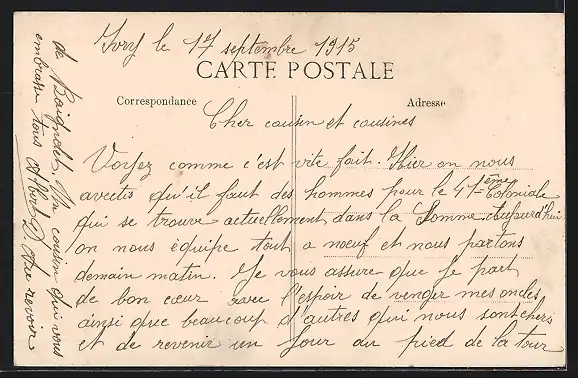 Ivry le 17 septembre 1915
CARTE POSTALE
Correspondance
Adresse
Cher cousin et cousines
Voyez comme c'est vite fait. Hier on nous
avertis qu'il faut des hommes pour le 41=ème Coloniale
qui se trouve actuellement dans la Somme. Aujourd'hui
on nous équipe tout a noeuf et nous partons
demain matin. Je vous assure que je part
de bon cœur avec l'espoir de venger mes oncles
ainsi que beaucoup d'autres qui nous sont chers
et de revenir un jour au pied de la tour
de Boignat. Un cousin qui vous
embrasse tous Albert D Au revoir